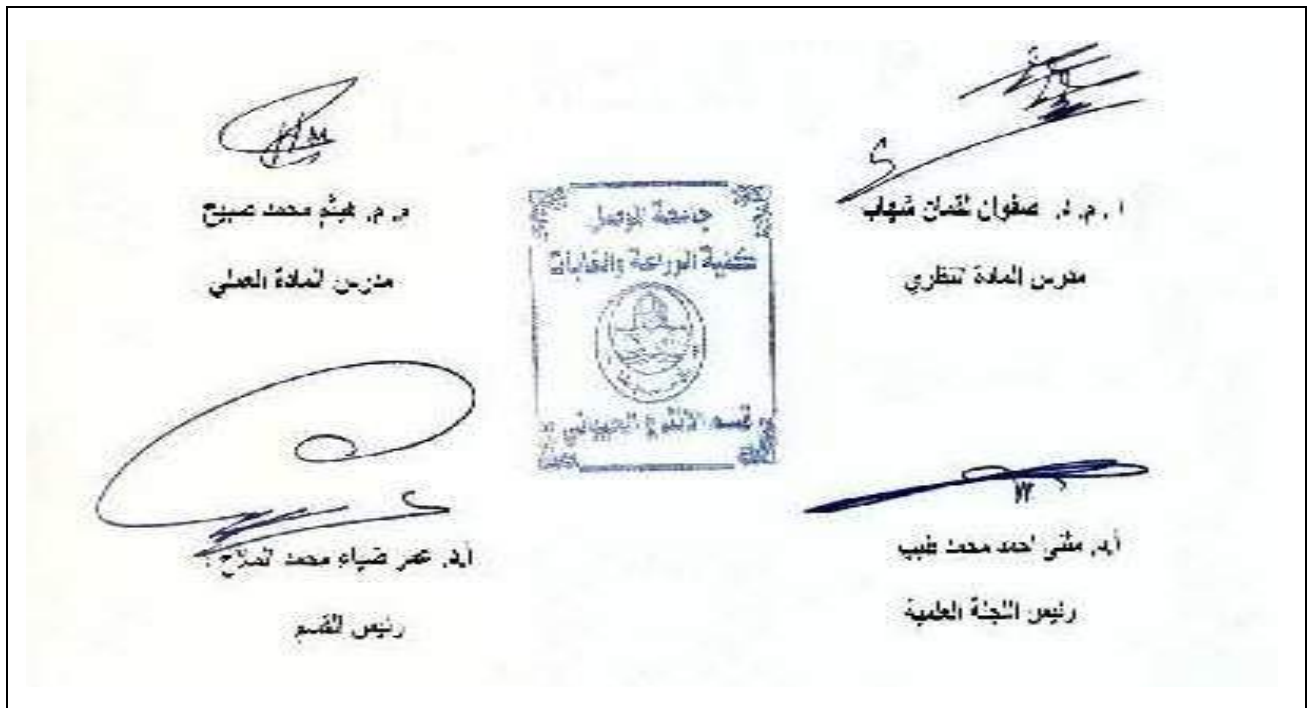 ا. م. د. صفوان لقمان شهاب
مدرس المادة النظري
م. م. هيثم محمد صبيح
مدرس المادة العملي
جامعة الموصل
كلية الزراعة والغابات
قسم الانتاج الحيواني
أ.د. مثنى احمد محمد طيب
رئيس اللجنة العلمية
أ.د. عمر ضياء محمد الملاح
رئيس القسم